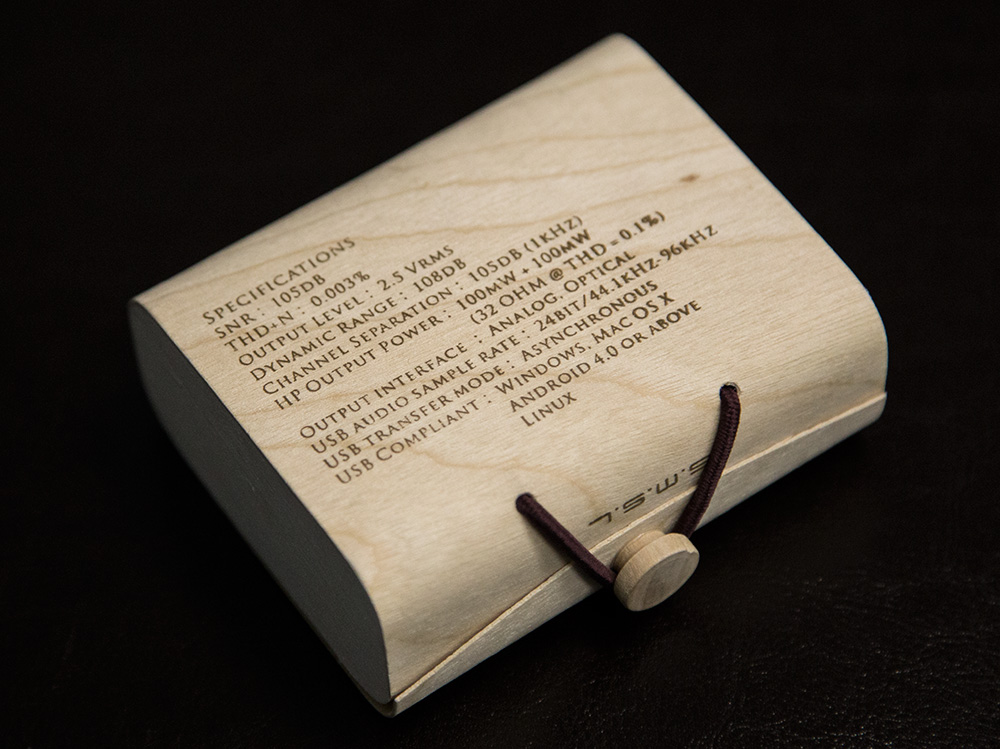 SPECIFICATIONS
SNR : 105DB
THD+N : 0.003%
OUTPUT LEVEL : 2.5 VRMS
DYNAMIC RANGE : 108DB
CHANNEL SEPARATION : 105DB (1KHZ)
HP OUTPUT POWER : 100MW + 100MW
(32 OHM @ THD = 0.1%)
OUTPUT INTERFACE : ANALOG, OPTICAL
USB AUDIO SAMPLE RATE : 24BIT/44.1KHZ-96KHZ
USB TRANSFER MODE : ASYNCHRONOUS
USB COMPLIANT : WINDOWS, MAC OS X
ANDROID 4.0 OR ABOVE
LINUX
S.M.S.L